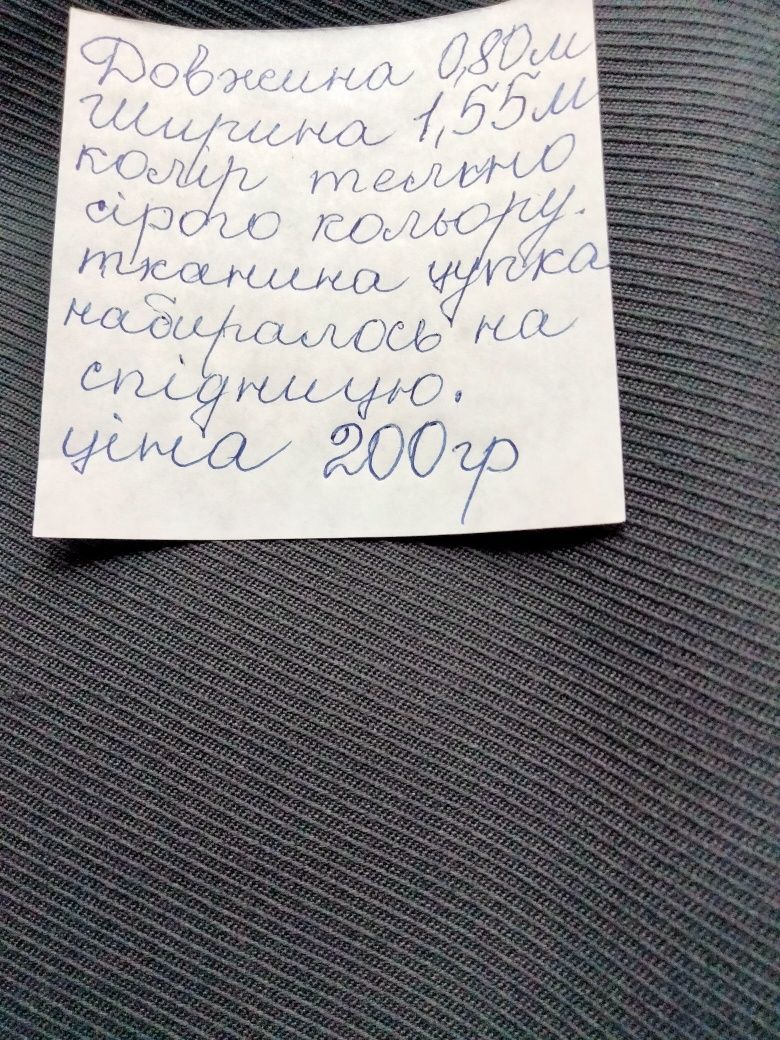 Довжина 0,80м
ширина 1,55м
колір темно
сірого кольору.
тканина цупка
набиралось на
спідницю.
ціна 200гр